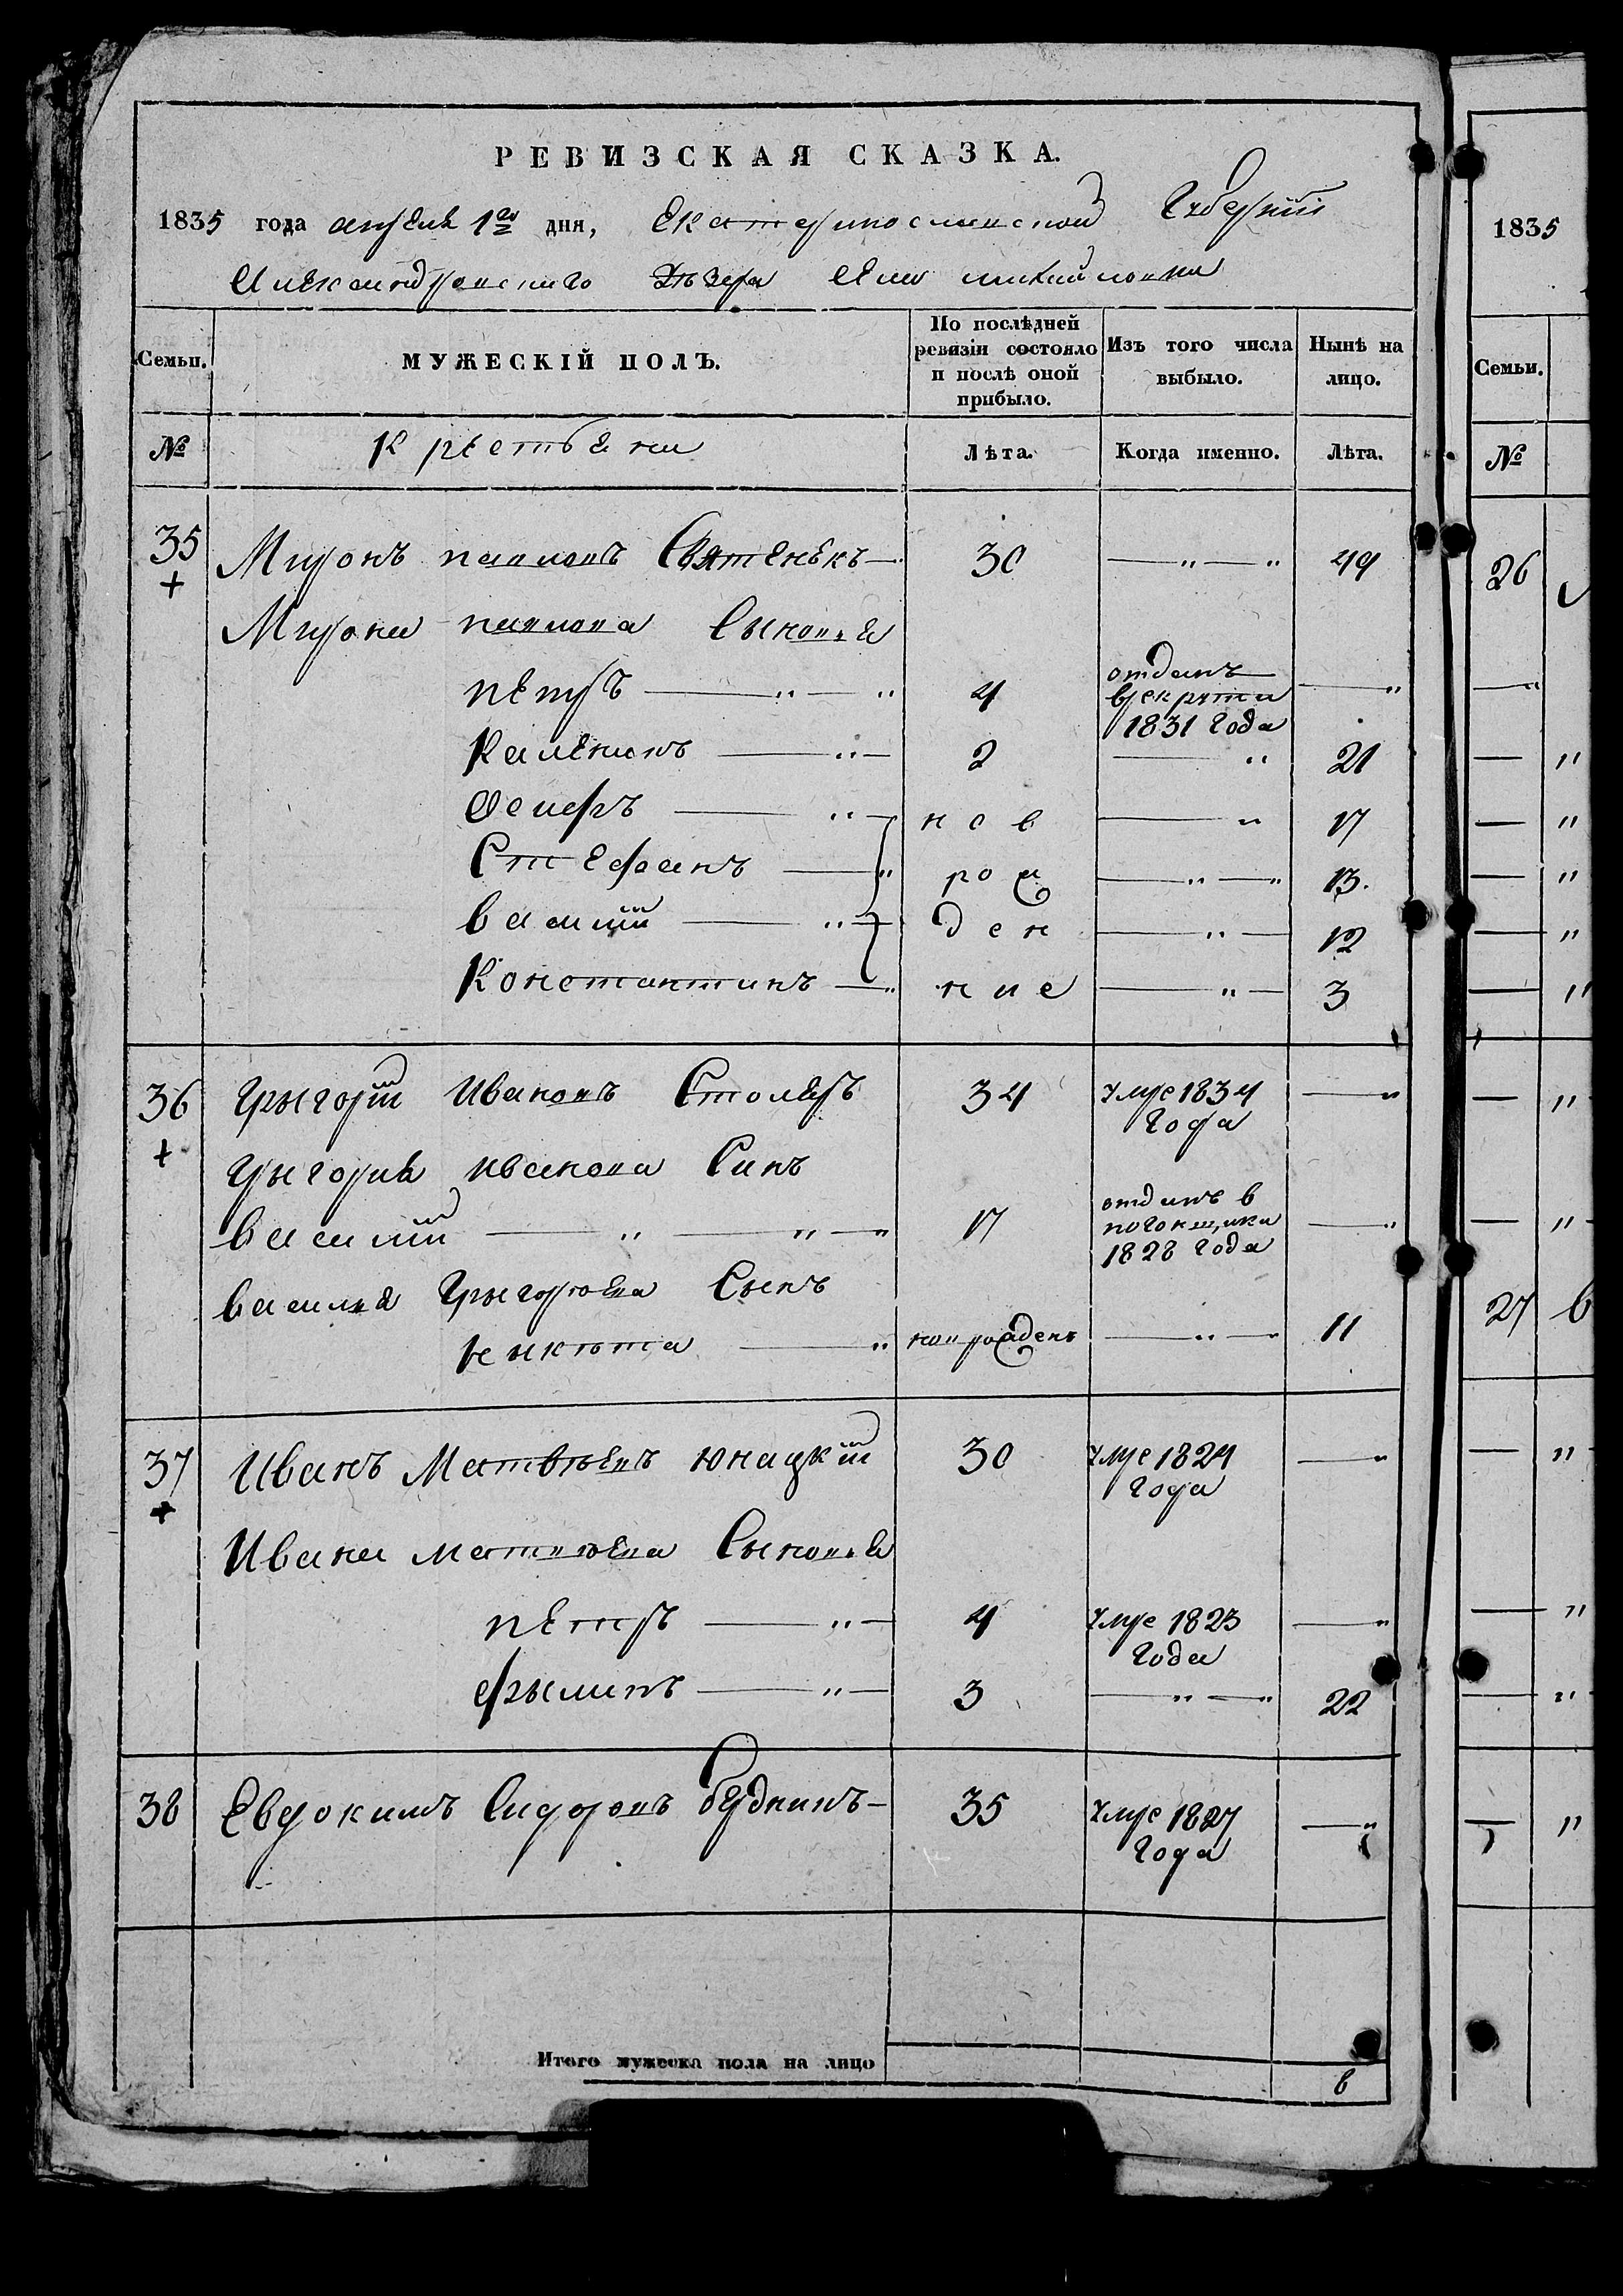 РЕВИЗСКАЯ СКАЗКА.
1835 года апреля 1го дня, Екатеринославской Губернiи
Александровского Уезда Села михайловки
Семьи.
МУЖЕСКIЙ ПОЛЪ.
По послѣдней ревизiи состояло и послѣ оной прибыло.
Изъ того числа выбыло.
Нынѣ на лицо.
№ Крестьяни Лѣта. Когда именно. Лѣта.
35 Миронъ павловъ Святенькъ 30 — " — " 49
Мирона павлова Сыновья
петръ — " — " 4 отданъ в рекруты 1831 года — "
Каленикъ — " — 2 — " 21
Феиоръ — " — нов — " 17
Стефанъ — " рож — " — " 13.
василiй — " — ден — " — 12
Константинъ — " ние — " — 3
36 Грыгорiй Ивановъ Столяръ 34 умре 1834 года — "
Грыгория иванова Синъ
василiй — " — " — " 17 отданъ в погонщики 1828 года — "
василия Грыгорьева Сынъ
никита — " новрожденъ — " — 11
37 Иванъ Матвѣевъ юнацкiй 30 умре 1824 года — "
Ивана матвѣева Сыновья
петръ — " — 4 умре 1823 года — "
филипъ — " — 3 — " — " 22
38 Евдокимъ Сидоровъ будникъ — 35 умре 1827 года — "
Итого мужеска пола на лицо
1835
Семьи.
№
26
27 в